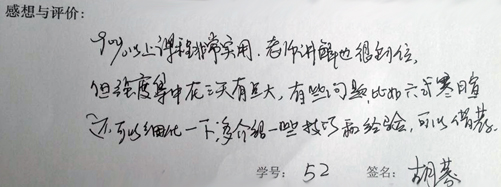 感想与评价:
90%以上课程非常实用.老师讲解也很到位,
但强度集中在三天有点大,有些问题,比如
还可以细化一下,多介绍一些技巧和经验,可以借鉴.
学号: 52 签名: 胡